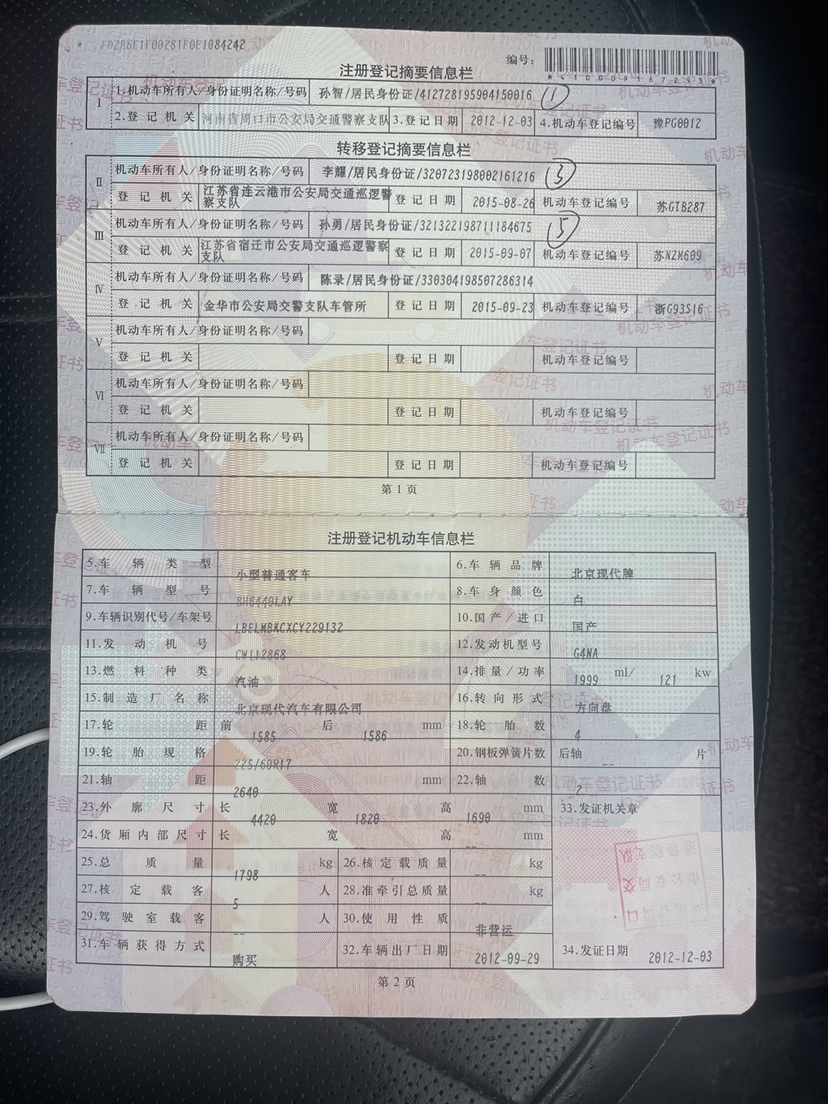 * FD2B6E1F00281E0E1084242
编号:
*410009167295*
注册登记摘要信息栏
I 1.机动车所有人/身份证明名称/号码 孙智/居民身份证/412728195904150016 ①
2.登记机关 河南省周口市公安局交通警察支队 3.登记日期 2012-12-03 4.机动车登记编号 豫PG0012
转移登记摘要信息栏
II 机动车所有人/身份证明名称/号码 李耀/居民身份证/320723198002161216 ③
登记机关 江苏省连云港市公安局交通巡逻警察支队 登记日期 2015-08-26 机动车登记编号 苏GTB287
III 机动车所有人/身份证明名称/号码 孙勇/居民身份证/321322198711184675 ⑤
登记机关 江苏省宿迁市公安局交通巡逻警察支队 登记日期 2015-09-07 机动车登记编号 苏NZM609
IV 机动车所有人/身份证明名称/号码 陈录/居民身份证/330304198507286314
登记机关 金华市公安局交警支队车管所 登记日期 2015-09-23 机动车登记编号 浙G93S16
V 机动车所有人/身份证明名称/号码
登记机关 登记日期 机动车登记编号
VI 机动车所有人/身份证明名称/号码
登记机关 登记日期 机动车登记编号
VII 机动车所有人/身份证明名称/号码
登记机关 登记日期 机动车登记编号
第1页
注册登记机动车信息栏
5.车辆类型 小型普通客车 6.车辆品牌 北京现代牌
7.车辆型号 BH6440LAY 8.车身颜色 白
9.车辆识别代号/车架号 LBELMBKCXCY229132 10.国产/进口 国产
11.发动机号 CW112868 12.发动机型号 G4NA
13.燃料种类 汽油 14.排量/功率 1999 ml/ 121 kw
15.制造厂名称 北京现代汽车有限公司 16.转向形式 方向盘
17.轮距 前 1585 后 1586 mm 18.轮胎数 4
19.轮胎规格 225/60R17 20.钢板弹簧片数 后轴 -- 片
21.轴距 2640 mm 22.轴数 2
23.外廓尺寸 长 4420 宽 1820 高 1690 mm 33.发证机关章
24.货厢内部尺寸 长 宽 高 -- mm
25.总质量 1798 kg 26.核定载质量 -- kg
27.核定载客 5 人 28.准牵引总质量 -- kg
29.驾驶室载客 -- 人 30.使用性质 非营运
31.车辆获得方式 购买 32.车辆出厂日期 2012-09-29 34.发证日期 2012-12-03
第2页